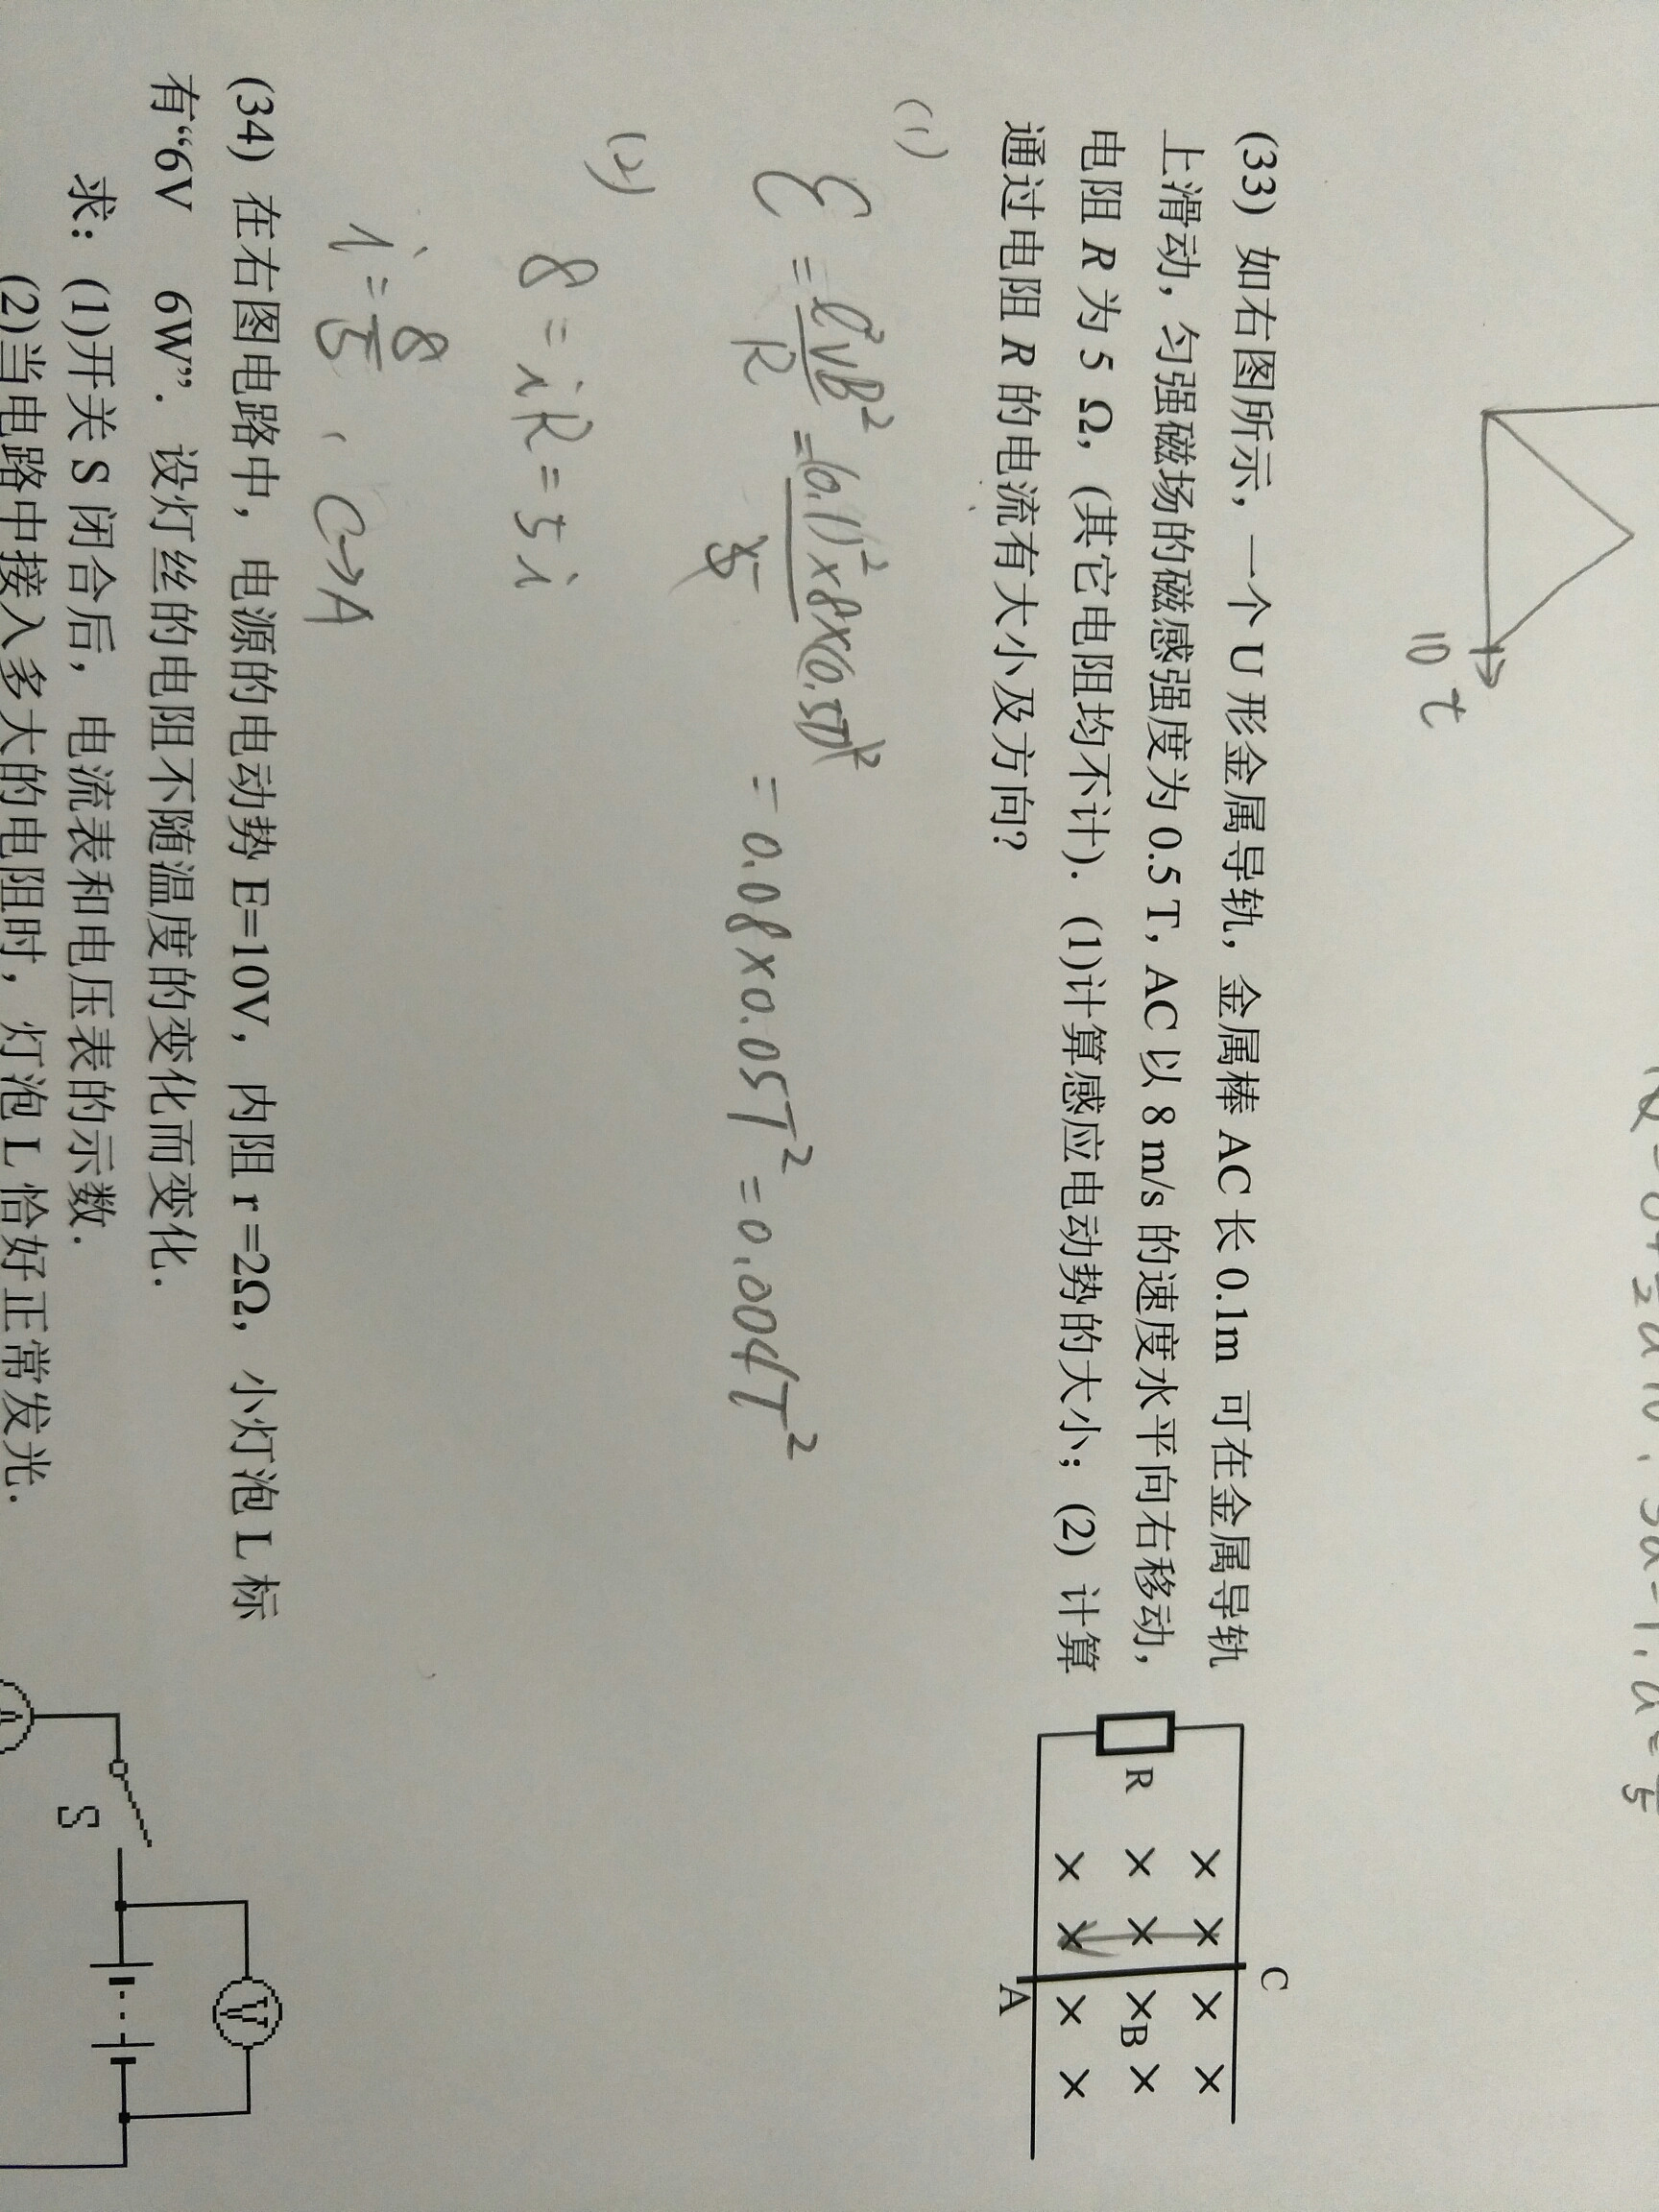 10 t
(33) 如右图所示，一个 U 形金属导轨，金属棒 AC 长 0.1m 可在金属导轨
上滑动，匀强磁场的磁感强度为 0.5 T，AC 以 8 m/s 的速度水平向右移动，
电阻 R 为 5 Ω，(其它电阻均不计)．(1)计算感应电动势的大小；(2) 计算
通过电阻 R 的电流有大小及方向?
R
C
B
A
(1)
ε = l²vB²/R = (0.1)²×8×(0.5T)²/5 = 0.08×0.05T² = 0.004T²
(2)
8 = iR = 5i
i = 8/5 , C→A
(34) 在右图电路中，电源的电动势 E=10V，内阻 r =2Ω，小灯泡 L 标
有“6V 6W”．设灯丝的电阻不随温度的变化而变化．
求：(1)开关 S 闭合后，电流表和电压表的示数．
(2)当电路中接入多大的电阻时，灯泡 L 恰好正常发光．
V
S
A